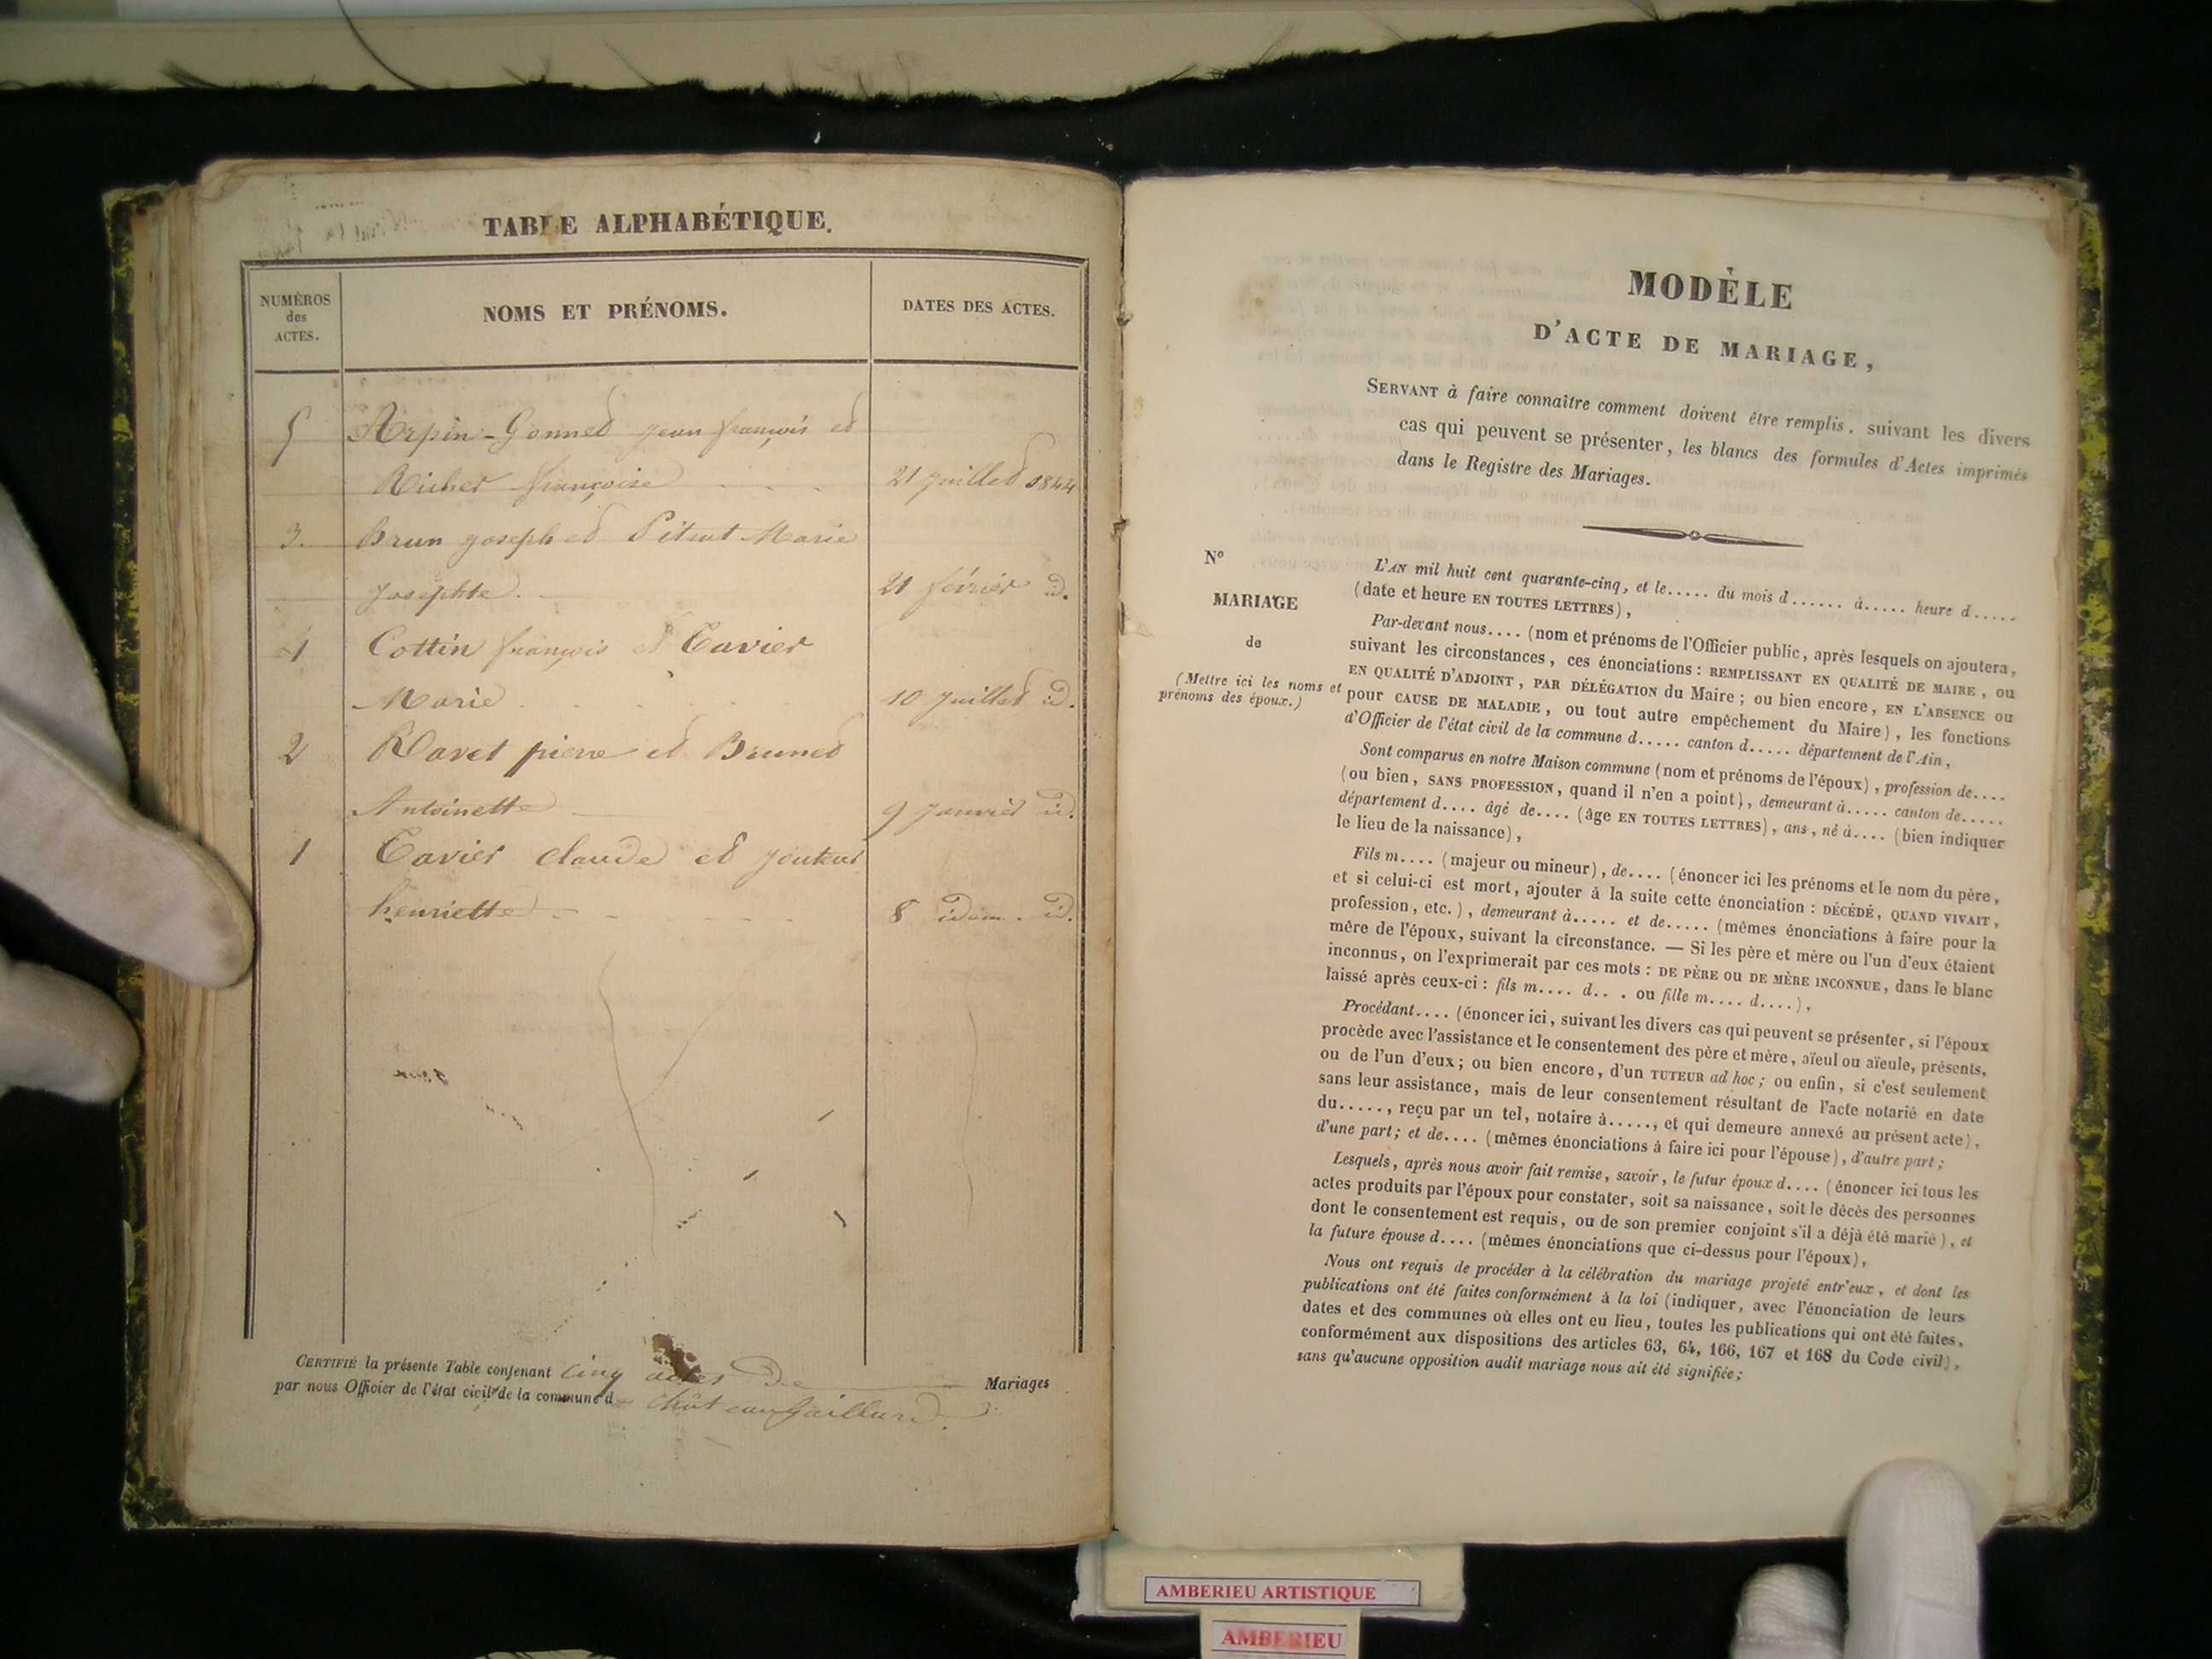 TABLE ALPHABÉTIQUE.
NUMÉROS
des
ACTES.
NOMS ET PRÉNOMS.
DATES DES ACTES.
5 Arpin-Gonnet jean françois et
Richer françoise 21 juillet 1844
3. Brun joseph et Pitiut Marie
Josephte. 21 février id.
4 Cottin françois et Tavier
Marie 10 juillet id.
2 Ravet pierre et Brunet
Antoinette 9 janvier id.
1 Tavier claude et jouteur
henriette 8 idem. id.
CERTIFIÉ la présente Table contenant cinq actes de Mariages
par nous Officier de l'état civil de la commune d Château gaillard.
MODÈLE
D'ACTE DE MARIAGE,
SERVANT à faire connaître comment doivent être remplis, suivant les divers
cas qui peuvent se présenter, les blancs des formules d'Actes imprimés
dans le Registre des Mariages.
N°
MARIAGE
de
(Mettre ici les noms et
prénoms des époux.)
L'AN mil huit cent quarante-cinq, et le..... du mois d...... à..... heure d.....
(date et heure EN TOUTES LETTRES),
Par-devant nous.... (nom et prénoms de l'Officier public, après lesquels on ajoutera,
suivant les circonstances, ces énonciations : REMPLISSANT EN QUALITÉ DE MAIRE, ou
EN QUALITÉ D'ADJOINT, PAR DÉLÉGATION du Maire; ou bien encore, EN L'ABSENCE ou
pour CAUSE DE MALADIE, ou tout autre empêchement du Maire), les fonctions
d'Officier de l'état civil de la commune d..... canton d..... département de l'Ain,
Sont comparus en notre Maison commune (nom et prénoms de l'époux), profession de....
(ou bien, SANS PROFESSION, quand il n'en a point), demeurant à..... canton de.....
département d.... âgé de.... (âge EN TOUTES LETTRES), ans, né à.... (bien indiquer
le lieu de la naissance),
Fils m.... (majeur ou mineur), de.... (énoncer ici les prénoms et le nom du père,
et si celui-ci est mort, ajouter à la suite cette énonciation : DÉCÉDÉ, QUAND VIVAIT,
profession, etc.), demeurant à..... et de..... (mêmes énonciations à faire pour la
mère de l'époux, suivant la circonstance. — Si les père et mère ou l'un d'eux étaient
inconnus, on l'exprimerait par ces mots : DE PÈRE ou DE MÈRE INCONNUE, dans le blanc
laissé après ceux-ci : fils m.... d.. . ou fille m.... d....),
Procédant.... (énoncer ici, suivant les divers cas qui peuvent se présenter, si l'époux
procède avec l'assistance et le consentement des père et mère, aïeul ou aïeule, présents,
ou de l'un d'eux; ou bien encore, d'un TUTEUR ad hoc; ou enfin, si c'est seulement
sans leur assistance, mais de leur consentement résultant de l'acte notarié en date
du....., reçu par un tel, notaire à....., et qui demeure annexé au présent acte),
d'une part; et de.... (mêmes énonciations à faire ici pour l'épouse), d'autre part;
Lesquels, après nous avoir fait remise, savoir, le futur époux d.... (énoncer ici tous les
actes produits par l'époux pour constater, soit sa naissance, soit le décès des personnes
dont le consentement est requis, ou de son premier conjoint s'il a déjà été marié), et
la future épouse d.... (mêmes énonciations que ci-dessus pour l'époux),
Nous ont requis de procéder à la célébration du mariage projeté entr'eux, et dont les
publications ont été faites conformément à la loi (indiquer, avec l'énonciation de leurs
dates et des communes où elles ont eu lieu, toutes les publications qui ont été faites,
conformément aux dispositions des articles 63, 64, 166, 167 et 168 du Code civil),
sans qu'aucune opposition audit mariage nous ait été signifiée;
AMBERIEU ARTISTIQUE
AMBERIEU